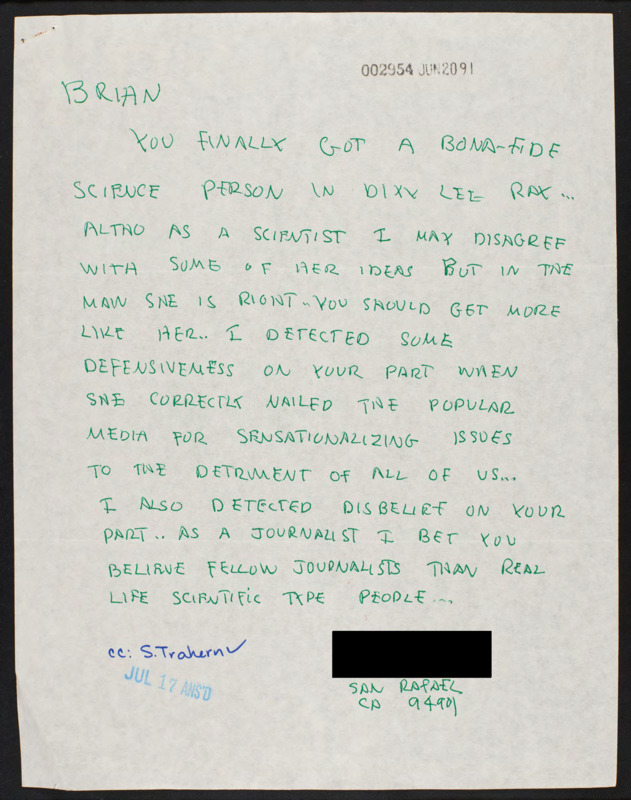 002954 JUN2091
BRIAN
YOU FINALLY GOT A BONA-FIDE
SCIENCE PERSON IN DIXY LEE RAY...
ALTHO AS A SCIENTIST I MAY DISAGREE
WITH SOME OF HER IDEAS BUT IN THE
MAIN SHE IS RIGHT.. YOU SHOULD GET MORE
LIKE HER.. I DETECTED SOME
DEFENSIVENESS ON YOUR PART WHEN
SHE CORRECTLY NAILED THE POPULAR
MEDIA FOR SENSATIONALIZING ISSUES
TO THE DETRIMENT OF ALL OF US...
I ALSO DETECTED DISBELIEF ON YOUR
PART.. AS A JOURNALIST I BET YOU
BELIEVE FELLOW JOURNALISTS THAN REAL
LIFE SCIENTIFIC TYPE PEOPLE...
cc: S. Trahern ✓
JUL 17 ANS'D
SAN RAFAEL
CA 94901